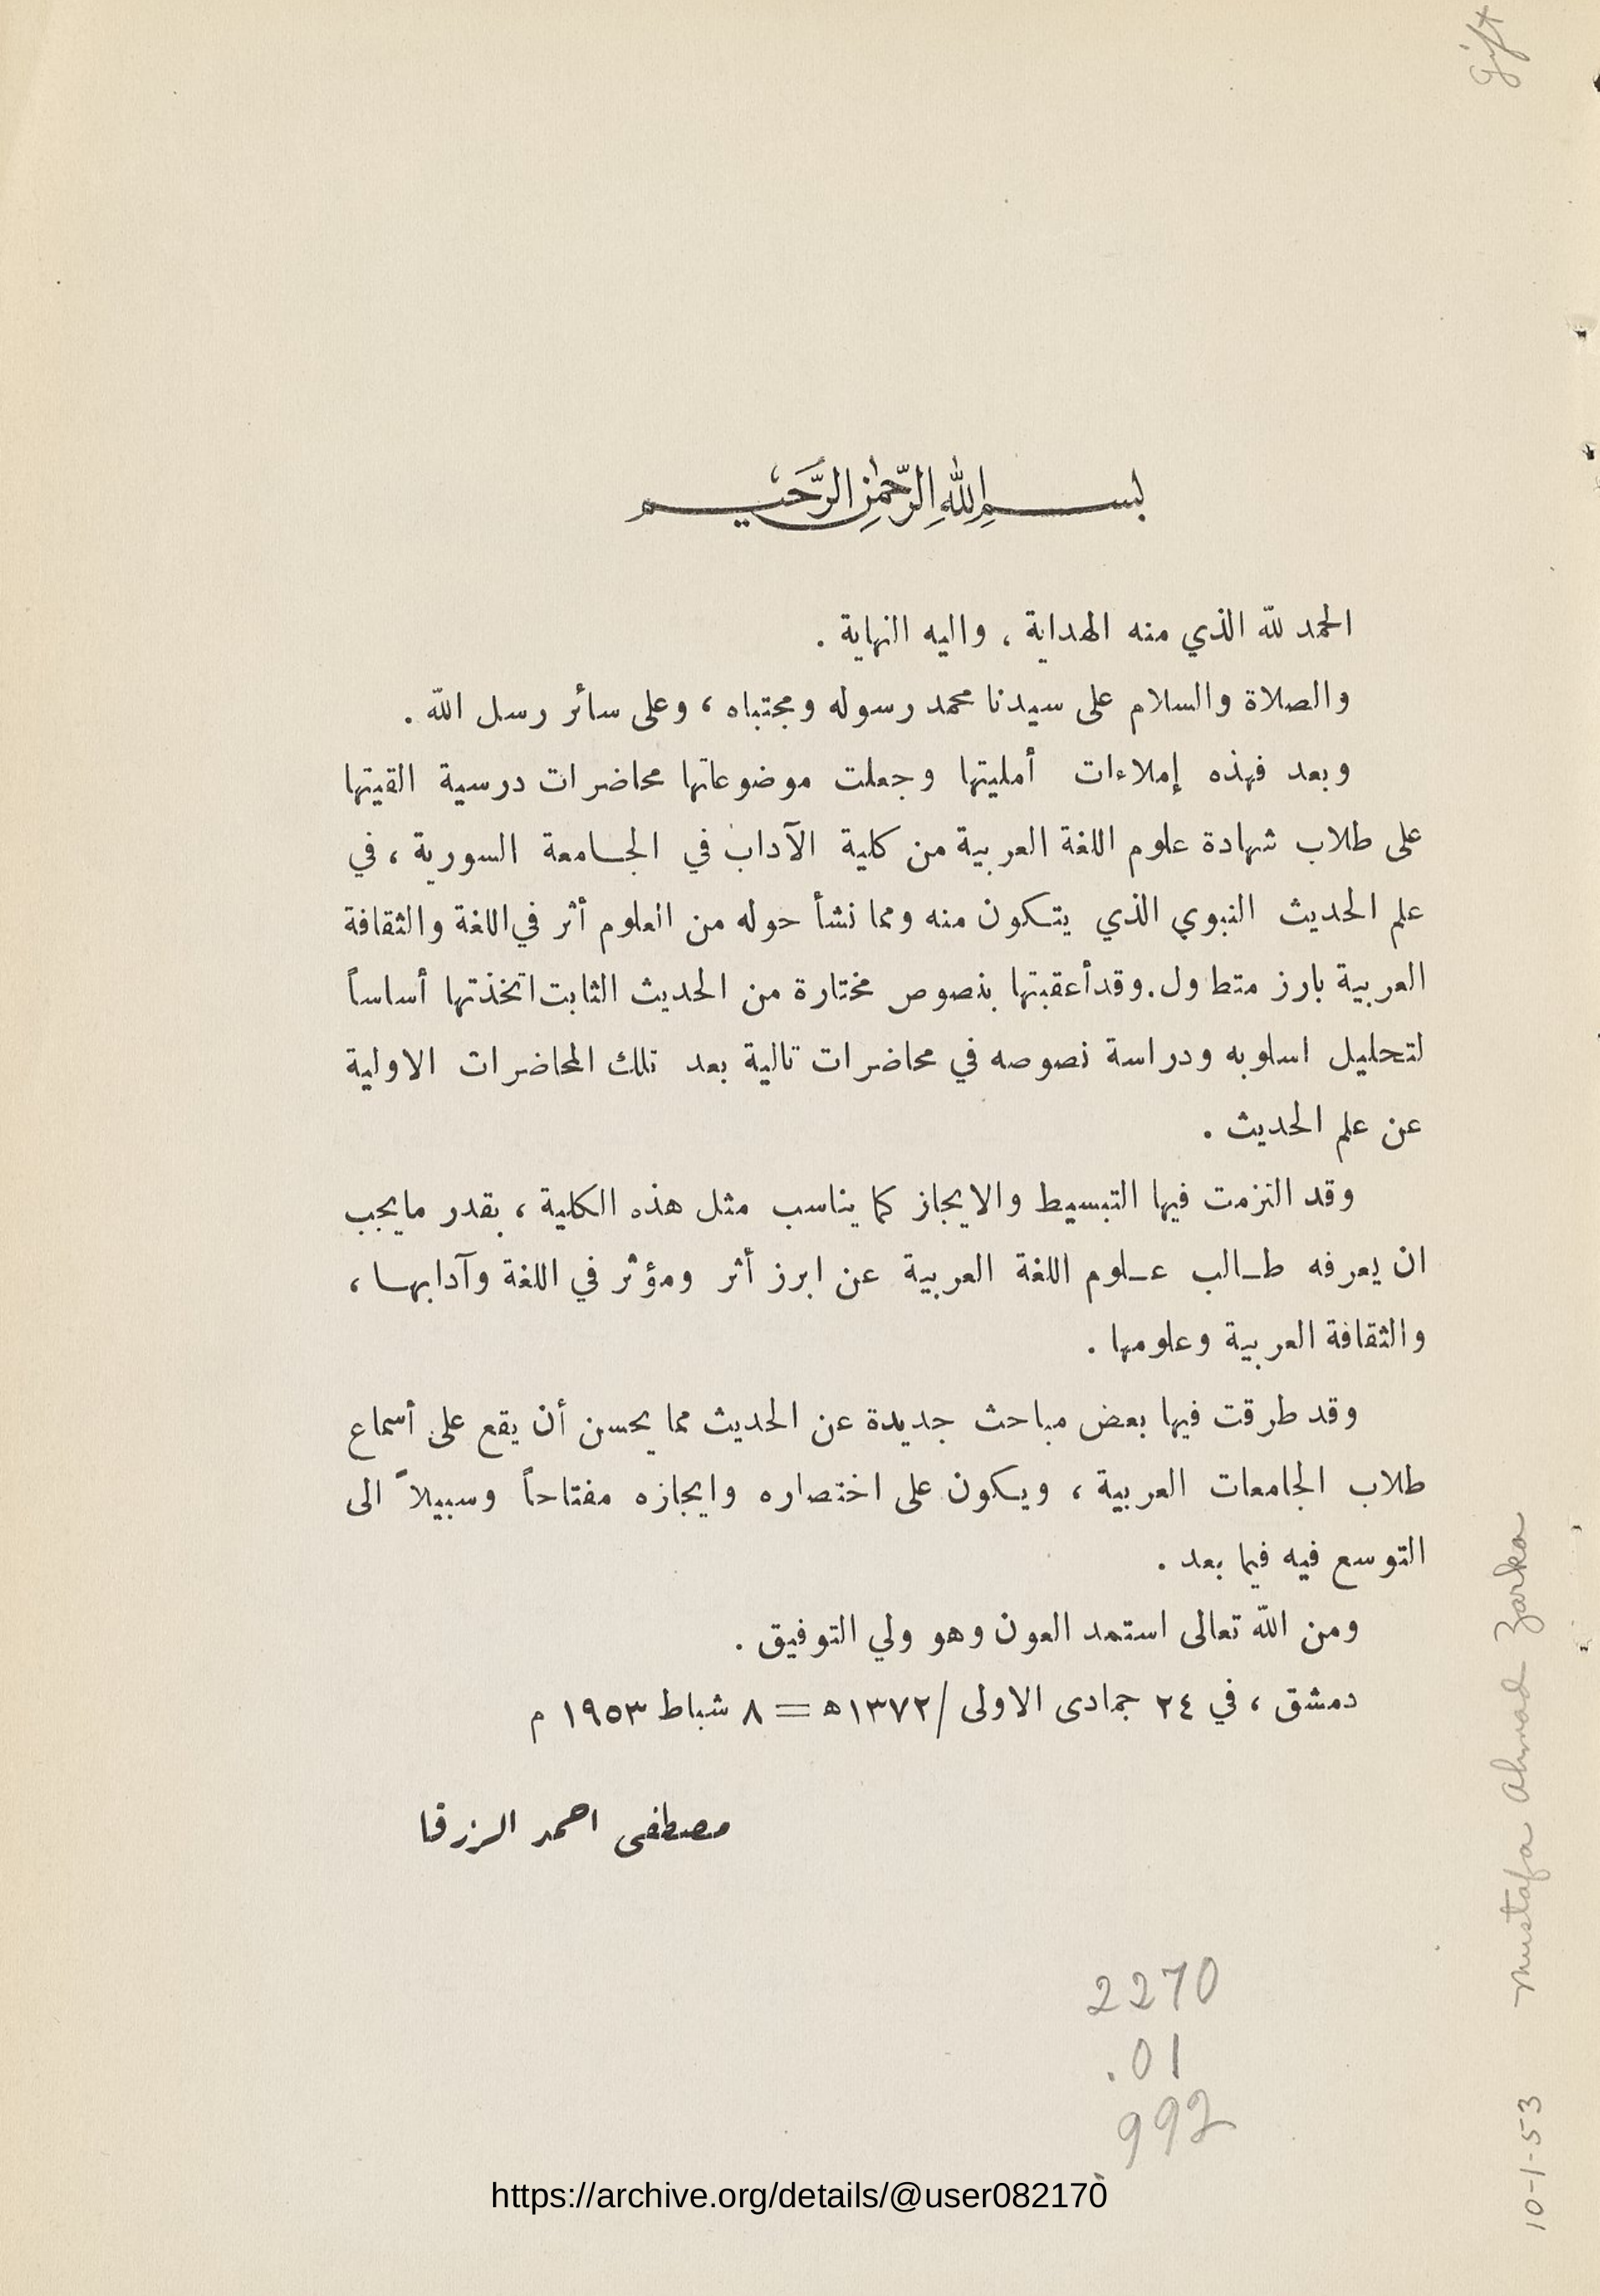 gift
بسم الله الرحمن الرحيم
الحمد لله الذي منه الهداية ، واليه النهاية .
والصلاة والسلام على سيدنا محمد رسوله ومجتباه ، وعلى سائر رسل الله .
وبعد فهذه إملاءات أمليتها وجعلت موضوعاتها محاضرات درسية القيتها
على طلاب شهادة علوم اللغة العربية من كلية الآداب في الجامعة السورية ، في
علم الحديث النبوي الذي يتكون منه ومما نشأ حوله من العلوم أثر في اللغة والثقافة
العربية بارز متطاول . وقد أعقبتها بنصوص مختارة من الحديث الثابت اتخذتها أساساً
لتحليل اسلوبه ودراسة نصوصه في محاضرات تالية بعد تلك المحاضرات الاولية
عن علم الحديث .
وقد التزمت فيها التبسيط والايجاز كما يناسب مثل هذه الكلية ، بقدر مايجب
ان يعرفه طالب علوم اللغة العربية عن ابرز أثر ومؤثر في اللغة وآدابها ،
والثقافة العربية وعلومها .
وقد طرقت فيها بعض مباحث جديدة عن الحديث مما يحسن أن يقع على أسماع
طلاب الجامعات العربية ، ويكون على اختصاره وايجازه مفتاحاً وسبيلاً الى
التوسع فيه فيما بعد .
ومن الله تعالى استمد العون وهو ولي التوفيق .
دمشق ، في ٢٤ جمادى الاولى /١٣٧٢ه = ٨ شباط ١٩٥٣ م
مصطفى احمد الزرقا
2270
.01
992
https://archive.org/details/@user082170
10-1-53 Mustafa Ahmad Zarka